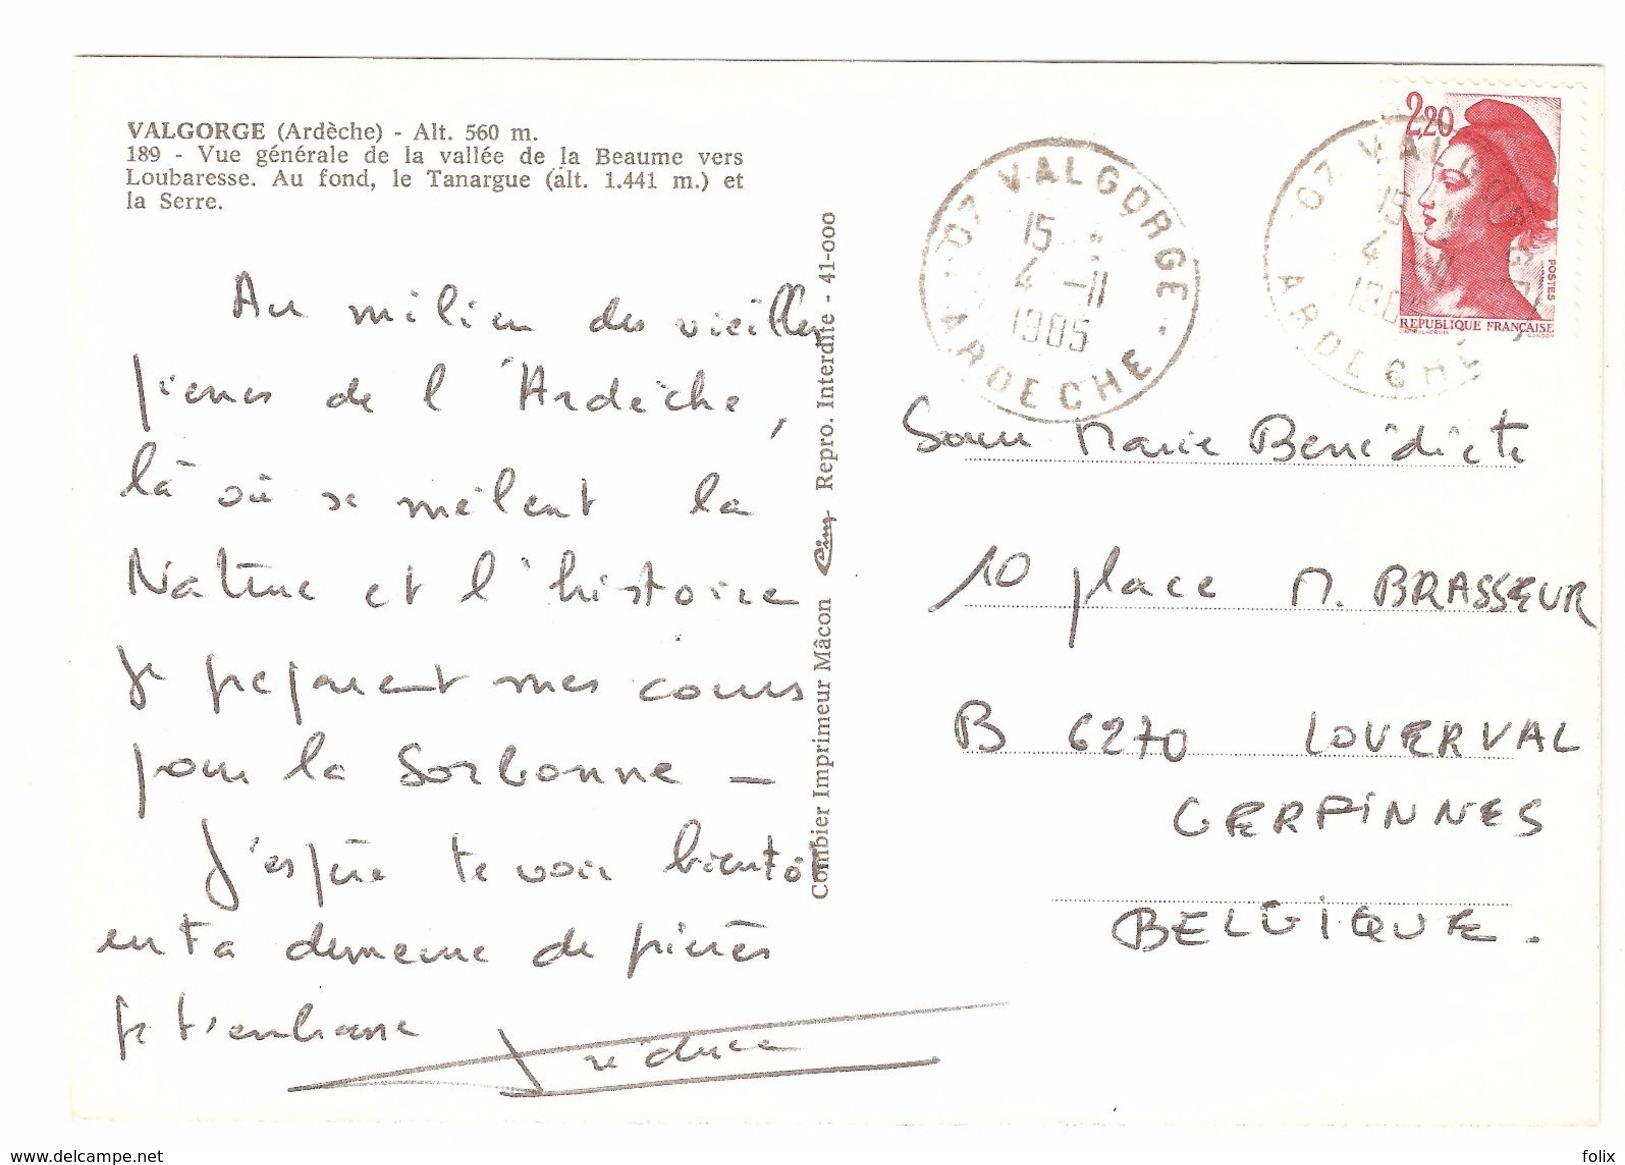 VALGORGE (Ardèche) - Alt. 560 m.
189 - Vue générale de la vallée de la Beaume vers
Loubaresse. Au fond, le Tanargue (alt. 1.441 m.) et
la Serre.
Au milieu des vieilles
pierres de l'Ardèche,
là où se mêlent la
Nature et l'histoire
je préparent mes cours
pour la Sorbonne -
J'espère te voir bientôt
en ta demeure de prières
je t'embrasse
Combier Imprimeur Mâcon Cim Repro. Interdite - 41-000
07 VALGORGE
15
4 -11
1985
ARDECHE
07 VALGORGE
15
4
ARDECHE
2,20
POSTES
REPUBLIQUE FRANÇAISE
Sœur Marie Bénédicte
10 place M. BRASSEUR
B 6270 LOUERVAL
GERPINNES
BELGIQUE.
www.delcampe.net
folix